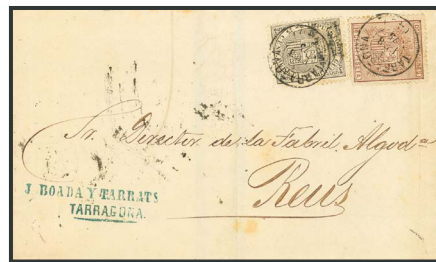 Sr. Director de la Fabril Algod.ª
Reus
J. BOADA Y TARRATS
TARRAGONA.
TARRAGONA